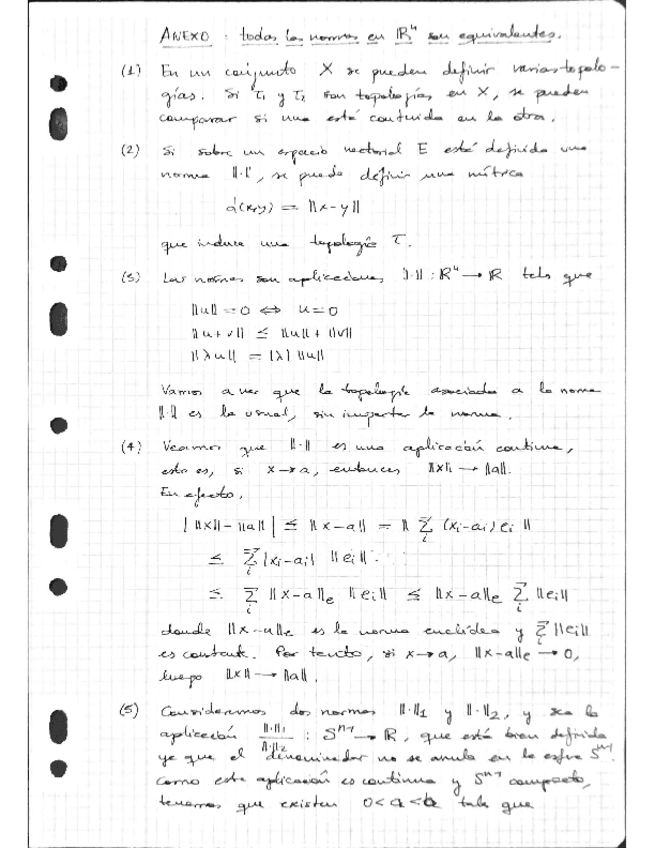 ANEXO : todas las normas en ℝⁿ son equivalentes.
(1) En un conjunto X se pueden definir varias topolo-
gías. Si τ₁ y τ₂ son topologías en X, se pueden
comparar si una está contenida en la otra.
(2) Si sobre un espacio vectorial E está definida una
norma ‖·‖, se puede definir una métrica
d(x,y) = ‖x-y‖
que induce una topología τ.
(3) Las normas son aplicaciones ‖·‖ : ℝⁿ → ℝ tales que
‖u‖ = 0 ⇔ u = 0
‖u+v‖ ≤ ‖u‖ + ‖v‖
‖λu‖ = |λ| ‖u‖
Vamos a ver que la topología asociada a la norma
‖·‖ es la usual, sin importar la norma.
(4) Veamos que ‖·‖ es una aplicación continua,
esto es, si x→a, entonces ‖x‖ → ‖a‖.
En efecto,
| ‖x‖ - ‖a‖ | ≤ ‖x-a‖ = ‖ Σᵢ (xᵢ-aᵢ) eᵢ ‖
≤ Σᵢ |xᵢ-aᵢ| ‖eᵢ‖
≤ Σᵢ ‖x-a‖ₑ ‖eᵢ‖ ≤ ‖x-a‖ₑ Σᵢ ‖eᵢ‖
donde ‖x-a‖ₑ es la norma euclídea y Σᵢ ‖eᵢ‖
es constante. Por tanto, si x→a, ‖x-a‖ₑ → 0,
luego ‖x‖ → ‖a‖.
(5) Consideremos dos normas ‖·‖₁ y ‖·‖₂, y sea la
aplicación ‖·‖₁/‖·‖₂ : Sⁿ⁻¹ → ℝ, que está bien definida
ya que el denominador no se anula en la esfera Sⁿ⁻¹.
Como esta aplicación es continua y Sⁿ⁻¹ compacto,
tenemos que existen 0<a<b tales que